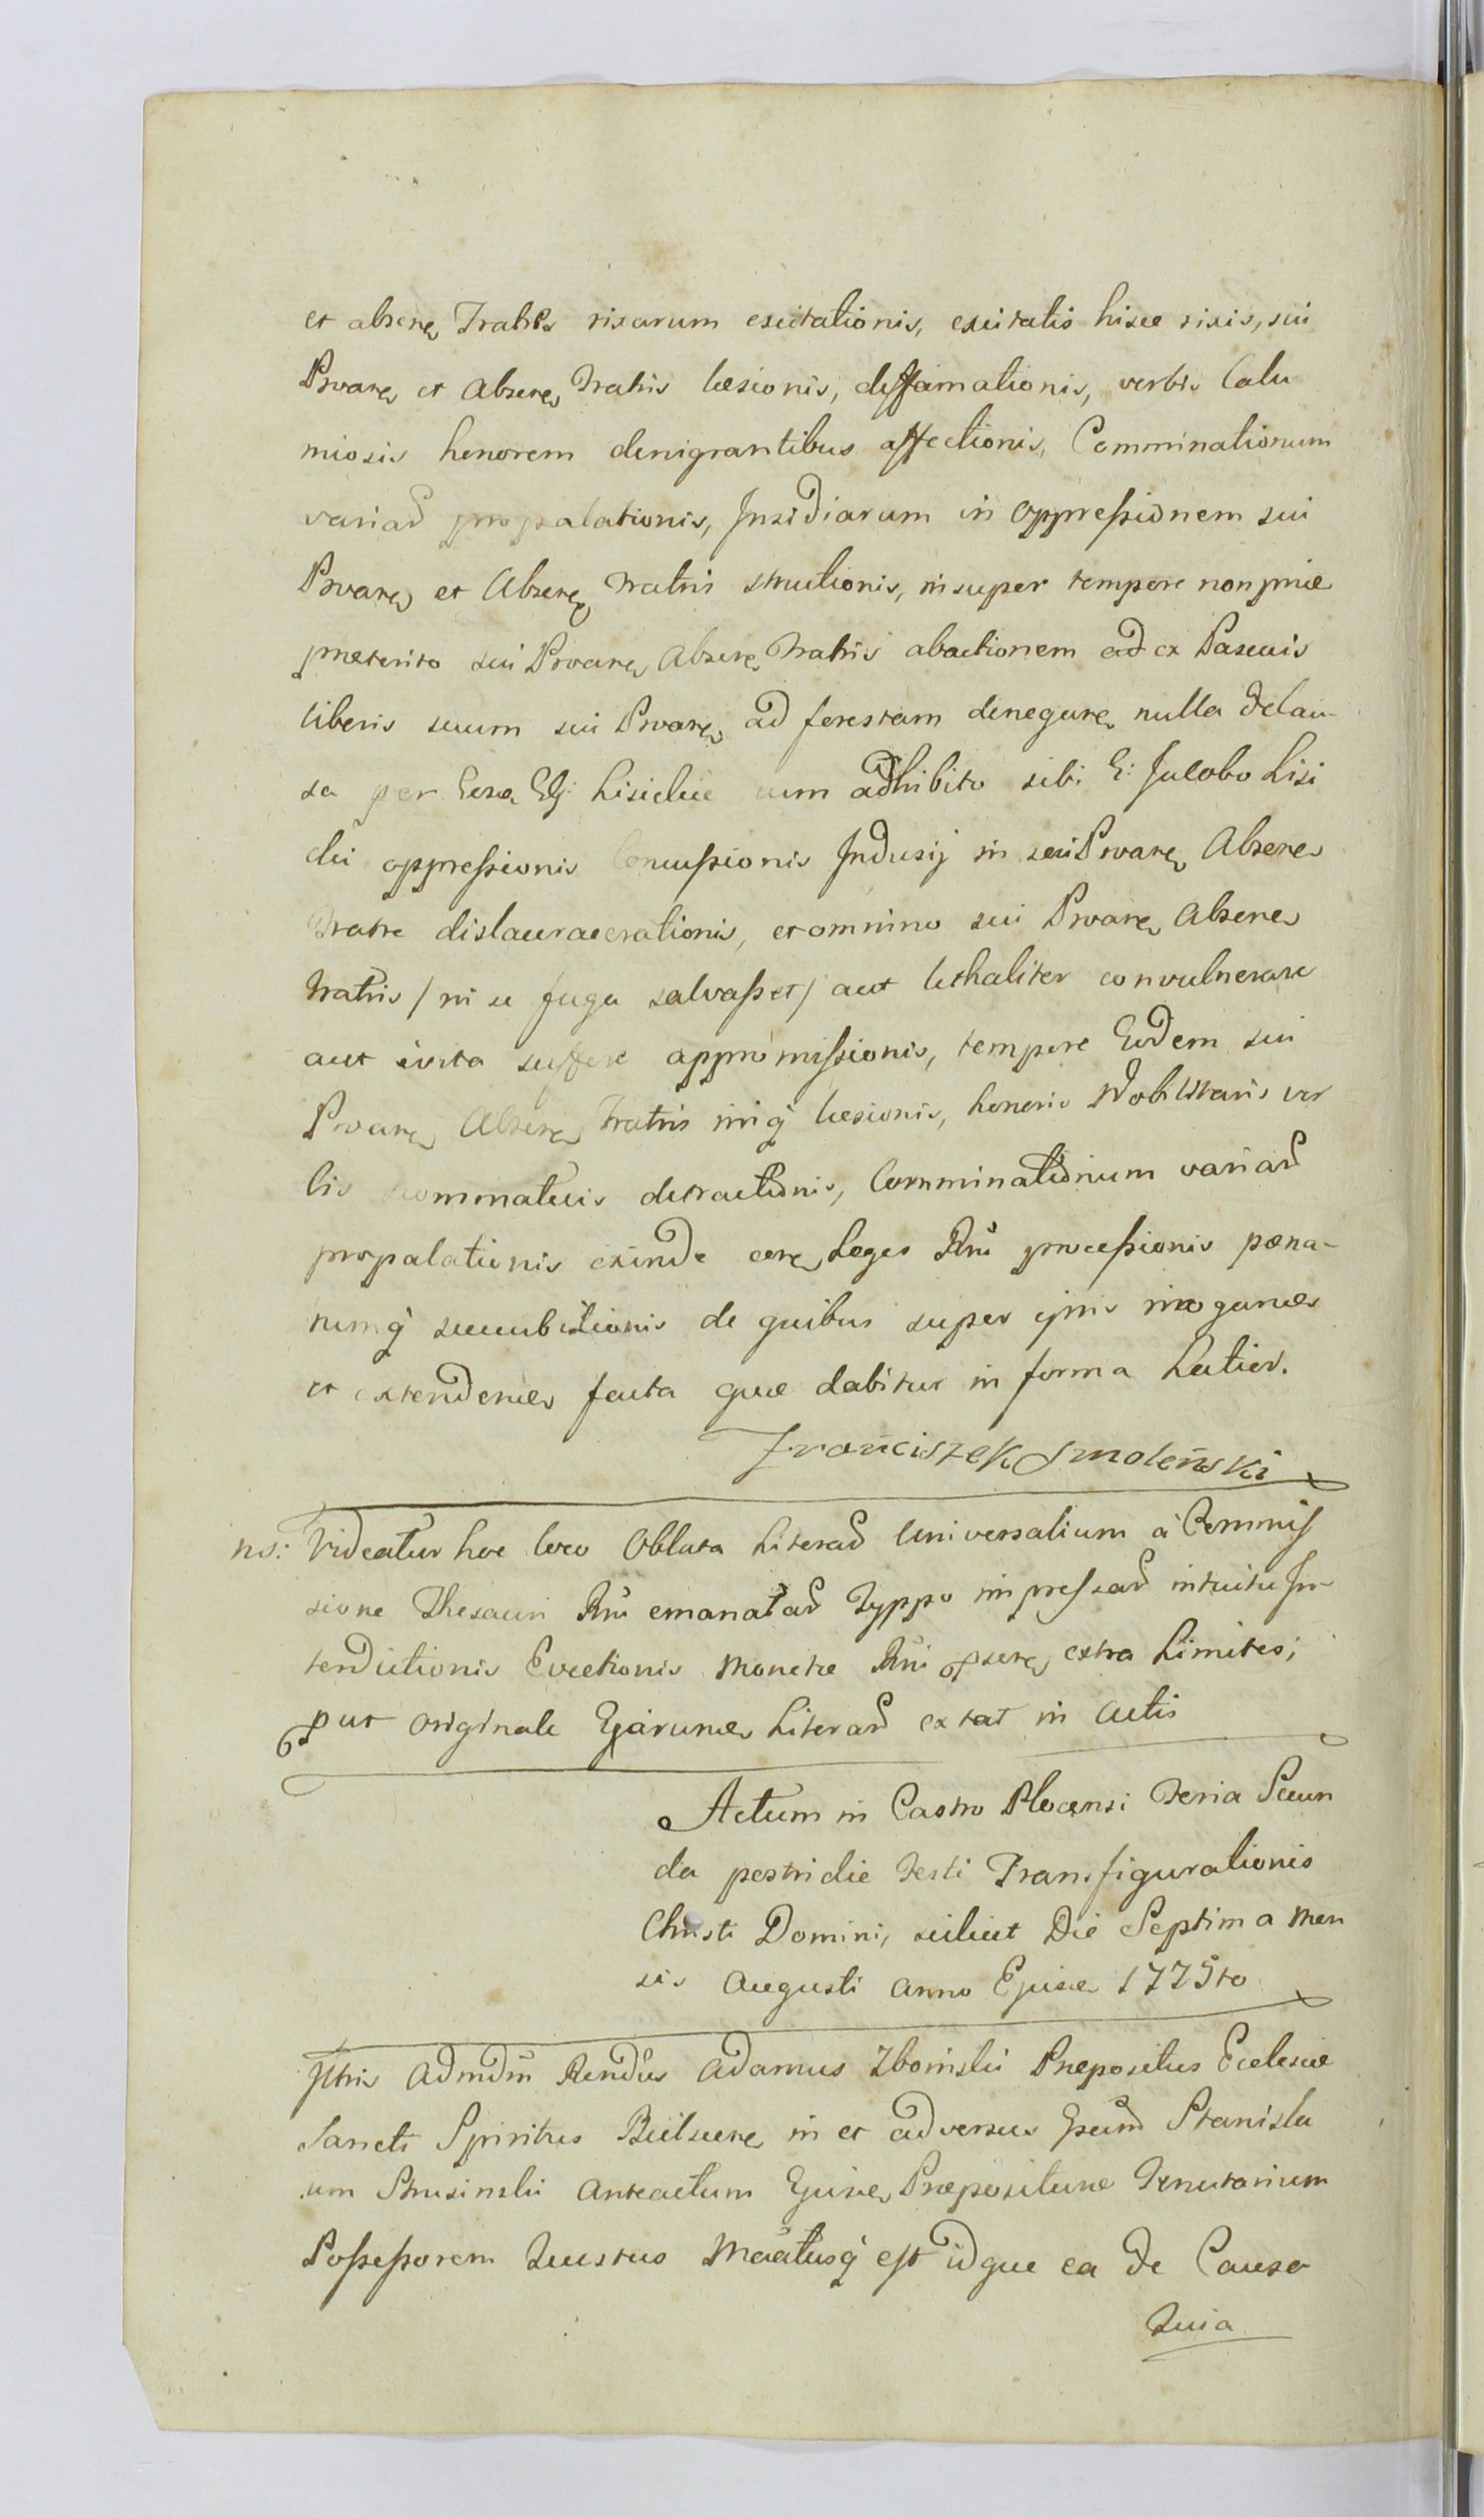 et absene Fratris rixarum excitationis, excitatis hisce rixis, sui
Provane et Absene Fratris læsionis, deffamationis, verbis Calu
miosis honorem denigrantibus affectionis, Comminationum
variar propalationis, Insidiarum in oppressionem sui
Provane et Absene Fratris structionis, insuper tempore non
præterito sui Provane Absene Fratris abactionem ad ex Pascuis
liberis suum sui Provane ad forestam denegare nulla de Cau-
sa per Lisickie cum adhibito sibi G: Jacobo Lisi
cki oppressionis Concussionis Indusij in sui Provane Absene
Fratre dislaceraerationis, et omnino sui Provane Absene
Fratris / ni se fuga salvasset / aut lethaliter convulnerare
aut è vita suffere appromissionis, tempore Eodem sui
Provane Absene Fratris læsionis, honoris Nobilitaris ver
bis detractionis, Comminationum variar
propalationis exinde Leges Rni processionis pœna-
rumq succubitionis de quibus super ipsis
et extendene facta quæ dabitur in forma Latior.
Franciszek Smoleński
ns: Videatur hoc loco Oblata Literar Universalium à Commis
sione Thesauri Rni emanatar Typpo impressar intuitu In-
terdictionis Evectionis Monetæ Rni extra Limites;
put originale Literar extat in Actis
Actum in Castro Plocensi Feria Secun
da postridie Festi Transfigurationis
Christi Domini, scilicet Die Septima Men
sis Augusti Anno 1775to
Illris Admdm Rendus Adamus Zboinski Præpositus Ecclesiæ
Sancti Spiritus in et adversus Stanisla
um Strusinski Anteactum Præpositure Tenutarium
Possessorem Questus est idque ea de Causa
Quia